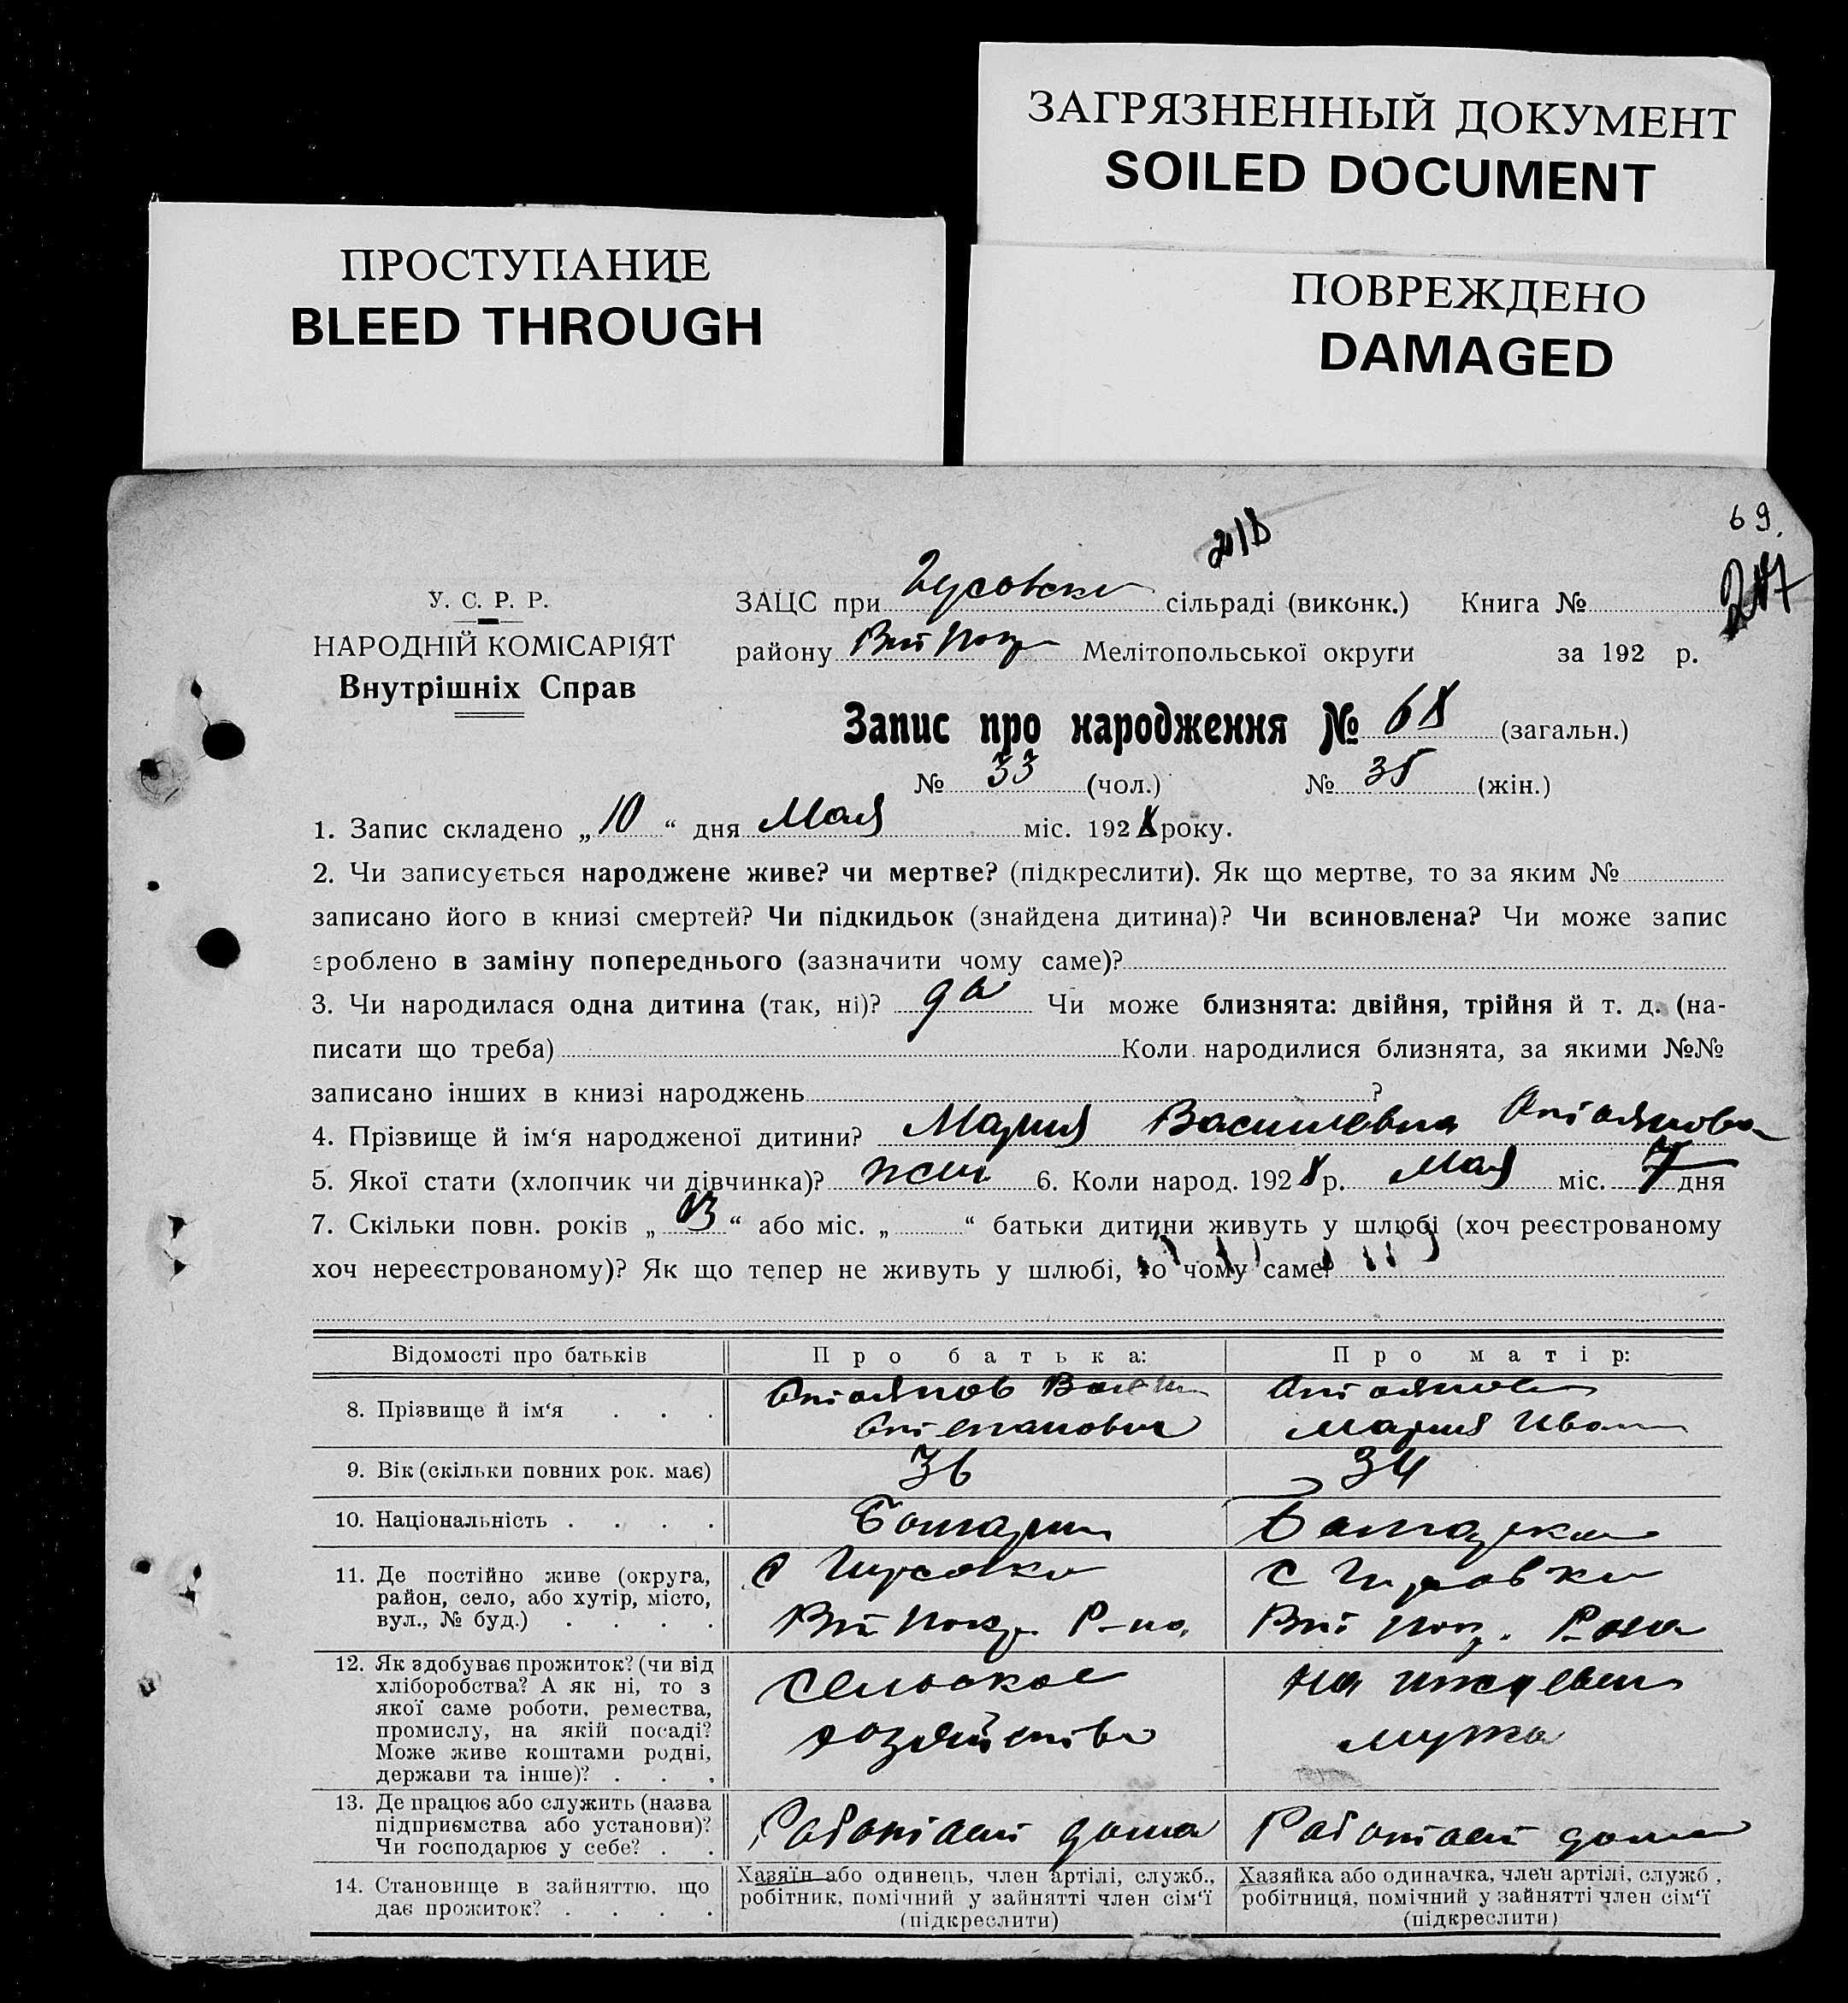 ЗАГРЯЗНЕННЫЙ ДОКУМЕНТ
SOILED DOCUMENT
ПРОСТУПАНИЕ
BLEED THROUGH
ПОВРЕЖДЕНО
DAMAGED
69.
У. С. Р. Р.
НАРОДНІЙ КОМІСАРІЯТ
Внутрішніх Справ
ЗАЦС при сільраді (виконк.) Книга №
району Мелітопольської округи за 192 р.
Запис про народження № 68 (загальн.)
№ 33 (чол.) № 35 (жін.)
1. Запис складено „10“ дня Мая міс. 1928 року.
2. Чи записується народжене живе? чи мертве? (підкреслити). Як що мертве, то за яким №
записано його в книзі смертей? Чи підкидьок (знайдена дитина)? Чи всиновлена? Чи може запис
зроблено в заміну попереднього (зазначити чому саме)?
3. Чи народилася одна дитина (так, ні)? да Чи може близнята: двійня, трійня й т. д. (на-
писати що треба) Коли народилися близнята, за якими №№
записано інших в книзі народжень ?
4. Прізвище й ім‘я народженої дитини? Мария Васильевна Стоянова
5. Якої стати (хлопчик чи дівчинка)? жен 6. Коли народ. 1928 р. Мая міс. 7 дня
7. Скільки повн. років „13“ або міс. „ “ батьки дитини живуть у шлюбі (хоч реєстрованому
хоч нереєстрованому)? Як що тепер не живуть у шлюбі, то чому саме?
Відомості про батьків
Про батька:
Про матір:
8. Прізвище й ім‘я . . .
Стоянов
Степанович
Стоянова
Мария Иван
9. Вік (скільки повних рок. має)
36
34
10. Національність . . . .
Болгарин
Болгарка
11. Де постійно живе (округа,
район, село, або хутір, місто,
вул., № буд.) . . . .
С
Вт Покр. Р-на
С
Вт Покр. Р-она
12. Як здобуває прожиток? (чи від
хліборобства? А як ні, то з
якої саме роботи, ремества,
промислу, на якій посаді?
Може живе коштами родні,
держави та інше)? . . .
Сельское
хозяйство
на иждевен
мужа
13. Де працює або служить (назва
підприємства або установи)?
Чи господарює у себе? . .
Работает дома
Работает дома
14. Становище в зайняттю, що
дає прожиток? . . . .
Хазяїн або одинець, член артілі, служб.,
робітник, помічний у зайнятті член сім‘ї
(підкреслити)
Хазяйка або одиначка, член артілі, служб.,
робітниця, помічний у зайнятті член сім‘ї
(підкреслити)